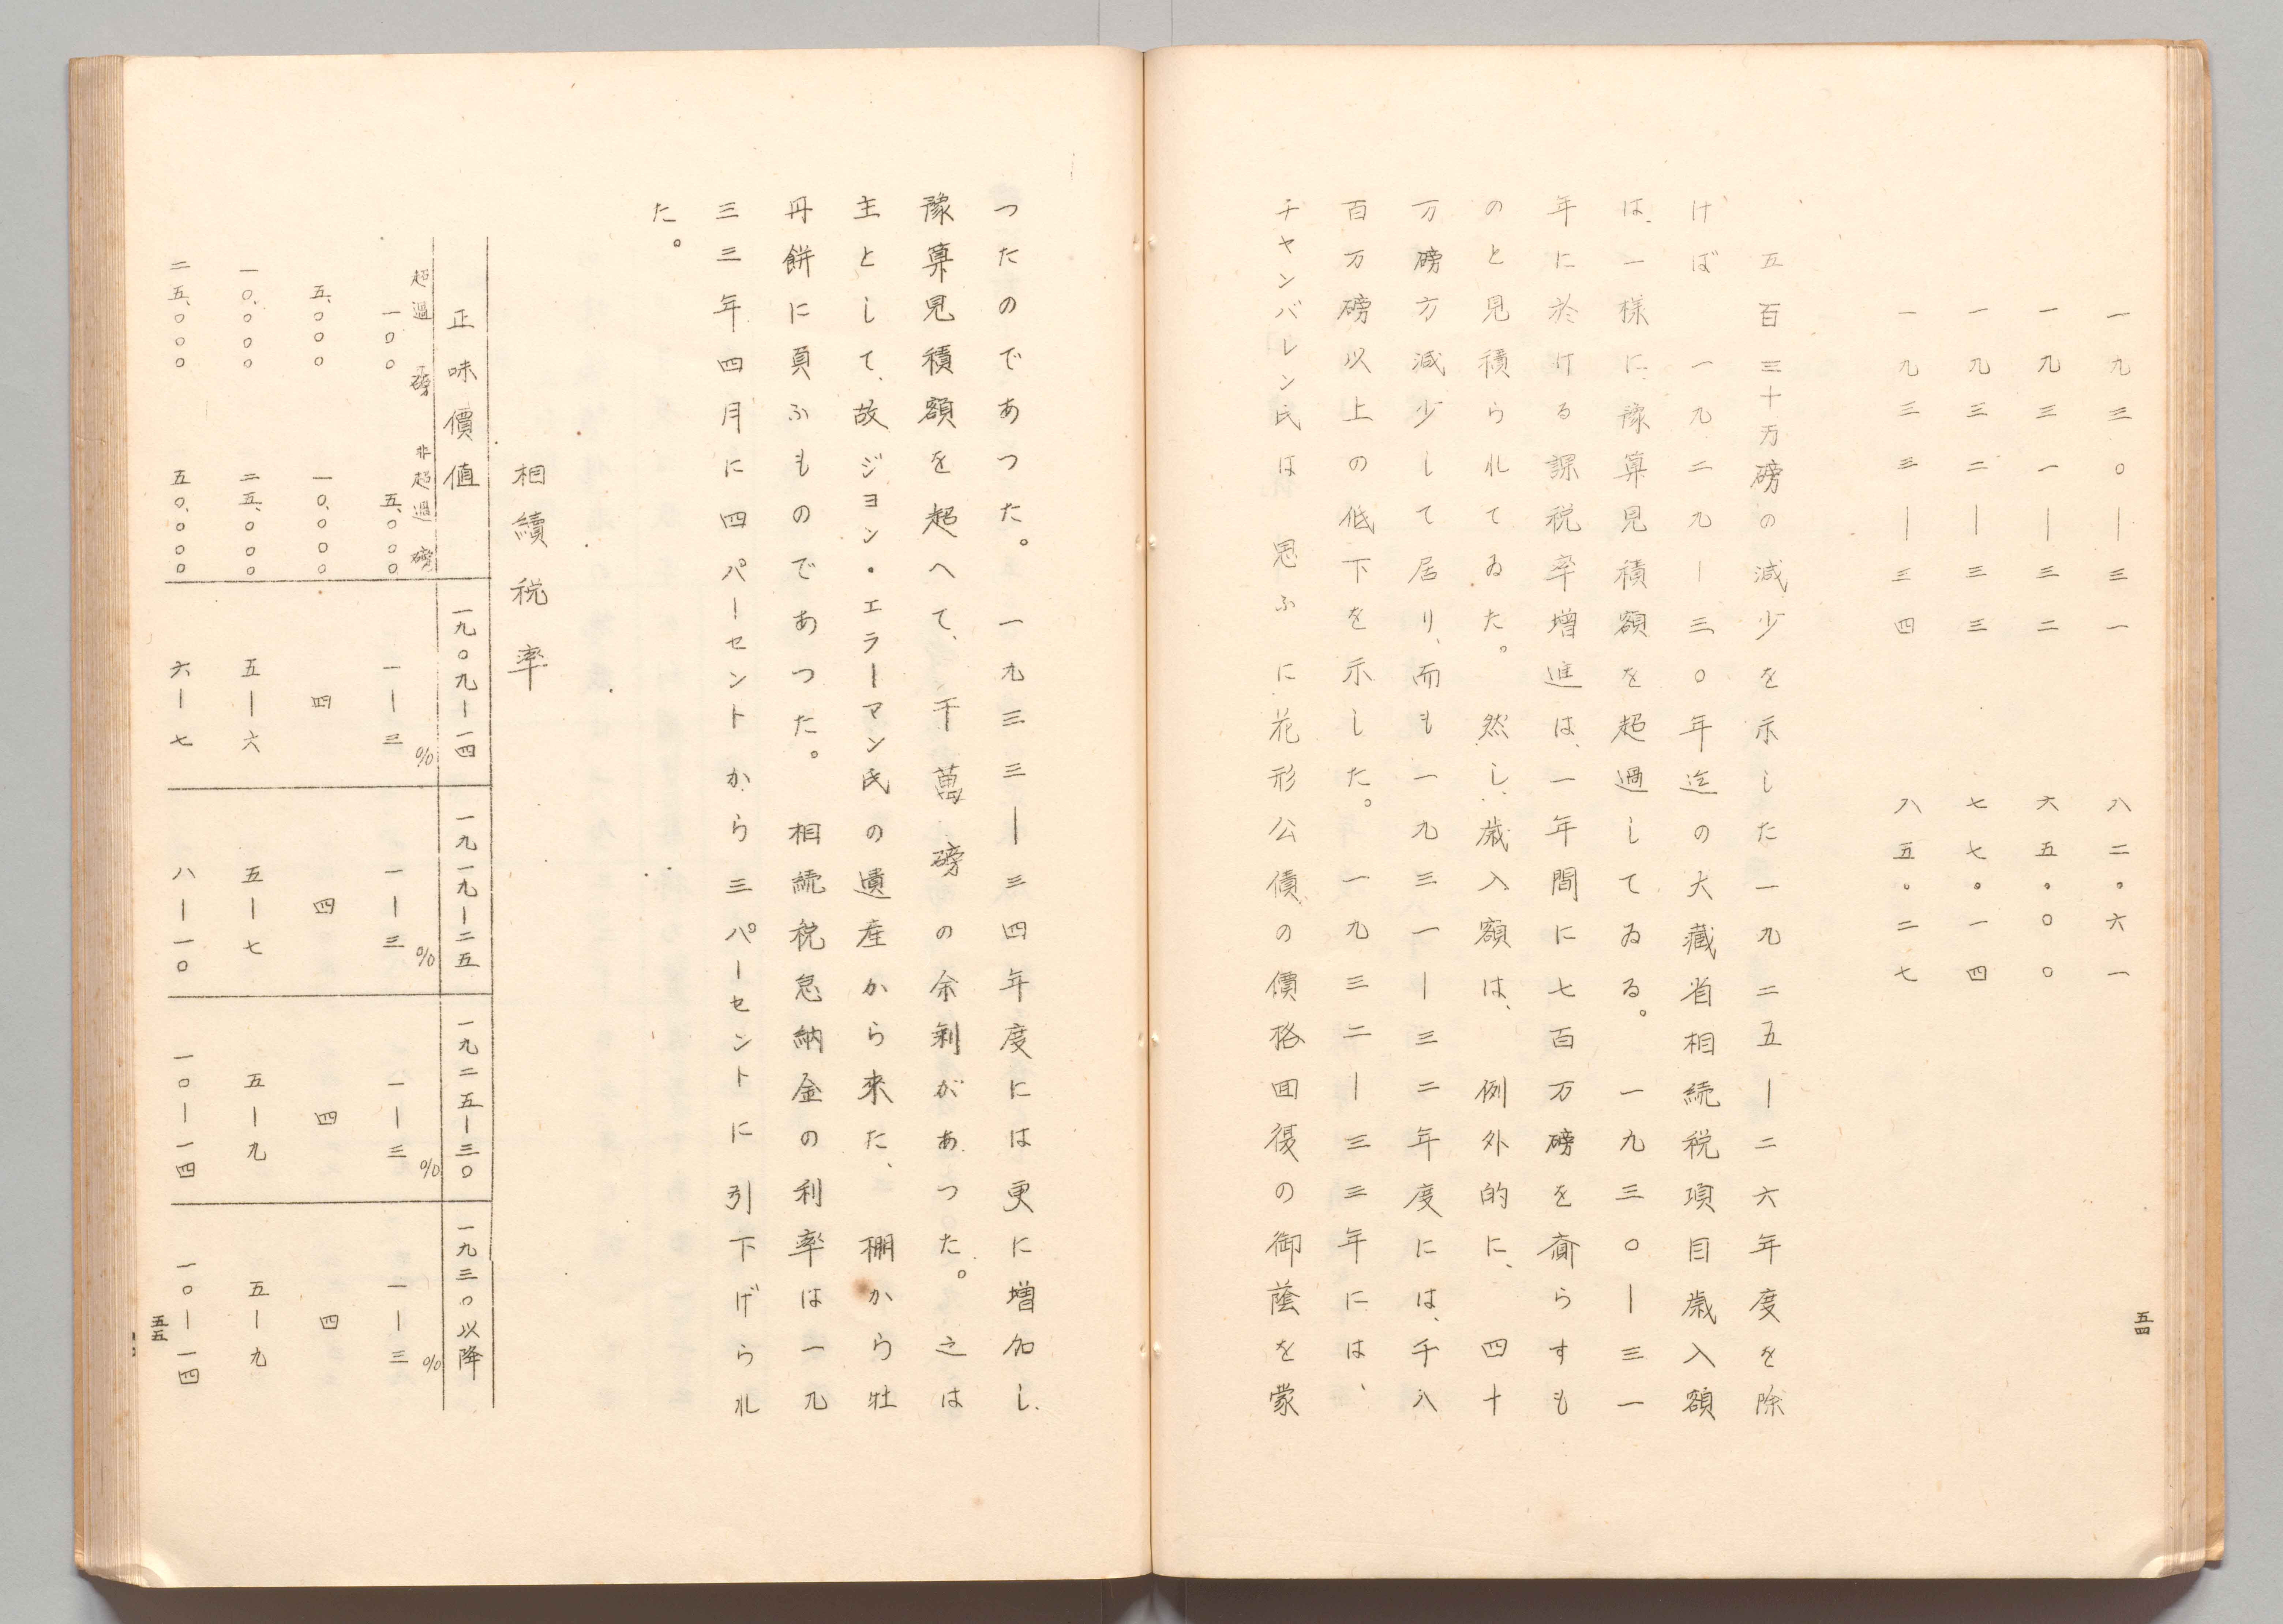 一九三〇―三一　八二・六一
一九三一―三二　六五・〇〇
一九三二―三三　七七・一四
一九三三―三四　八五・二七
五百三十万磅の減少を示した一九二五―二六年度を除
けば　一九二九―三〇年迄の大藏省相続税項目歳入額
は、一様に、豫算見積額を超過してゐる。　一九三〇―三一
年に於ける課税率増進は、一年間に七百万磅を齎らすも
のと見積られてゐた。　然し、歳入額は、　例外的に、　四十
万磅方減少して居り、而も一九三一―三二年度には、千八
百万磅以上の低下を示した。　一九三二―三三年には、
チャンバレン氏は　思ふ　に花形公債の價格囬復の御蔭を蒙
五四
つたのであつた。　一九三三―三四年度には更に増加し、
豫算見積額を超へて、　千萬　磅　の余剰があつた。　之は
主として、故ジョン・エラーマン氏の遺産から來た、　棚から牡
丹餅に負ふものであつた。　相続税怠納金の利率は一九
三三年四月に四パーセントから三パーセントに引下げられ
た。
相續税率
正味價値　一九〇九―一四　一九一九―二五　一九二五―三〇　一九三〇以降
超過　磅　非超過　磅　%　%　%　%
一〇〇　五、〇〇〇　一―三　一―三　一―三　一―三
五、〇〇〇　一〇、〇〇〇　四　四　四　四
一〇、〇〇〇　二五、〇〇〇　五―六　五―七　五―九　五―九
二五、〇〇〇　五〇、〇〇〇　六―七　八―一〇　一〇―一四　一〇―一四
五五